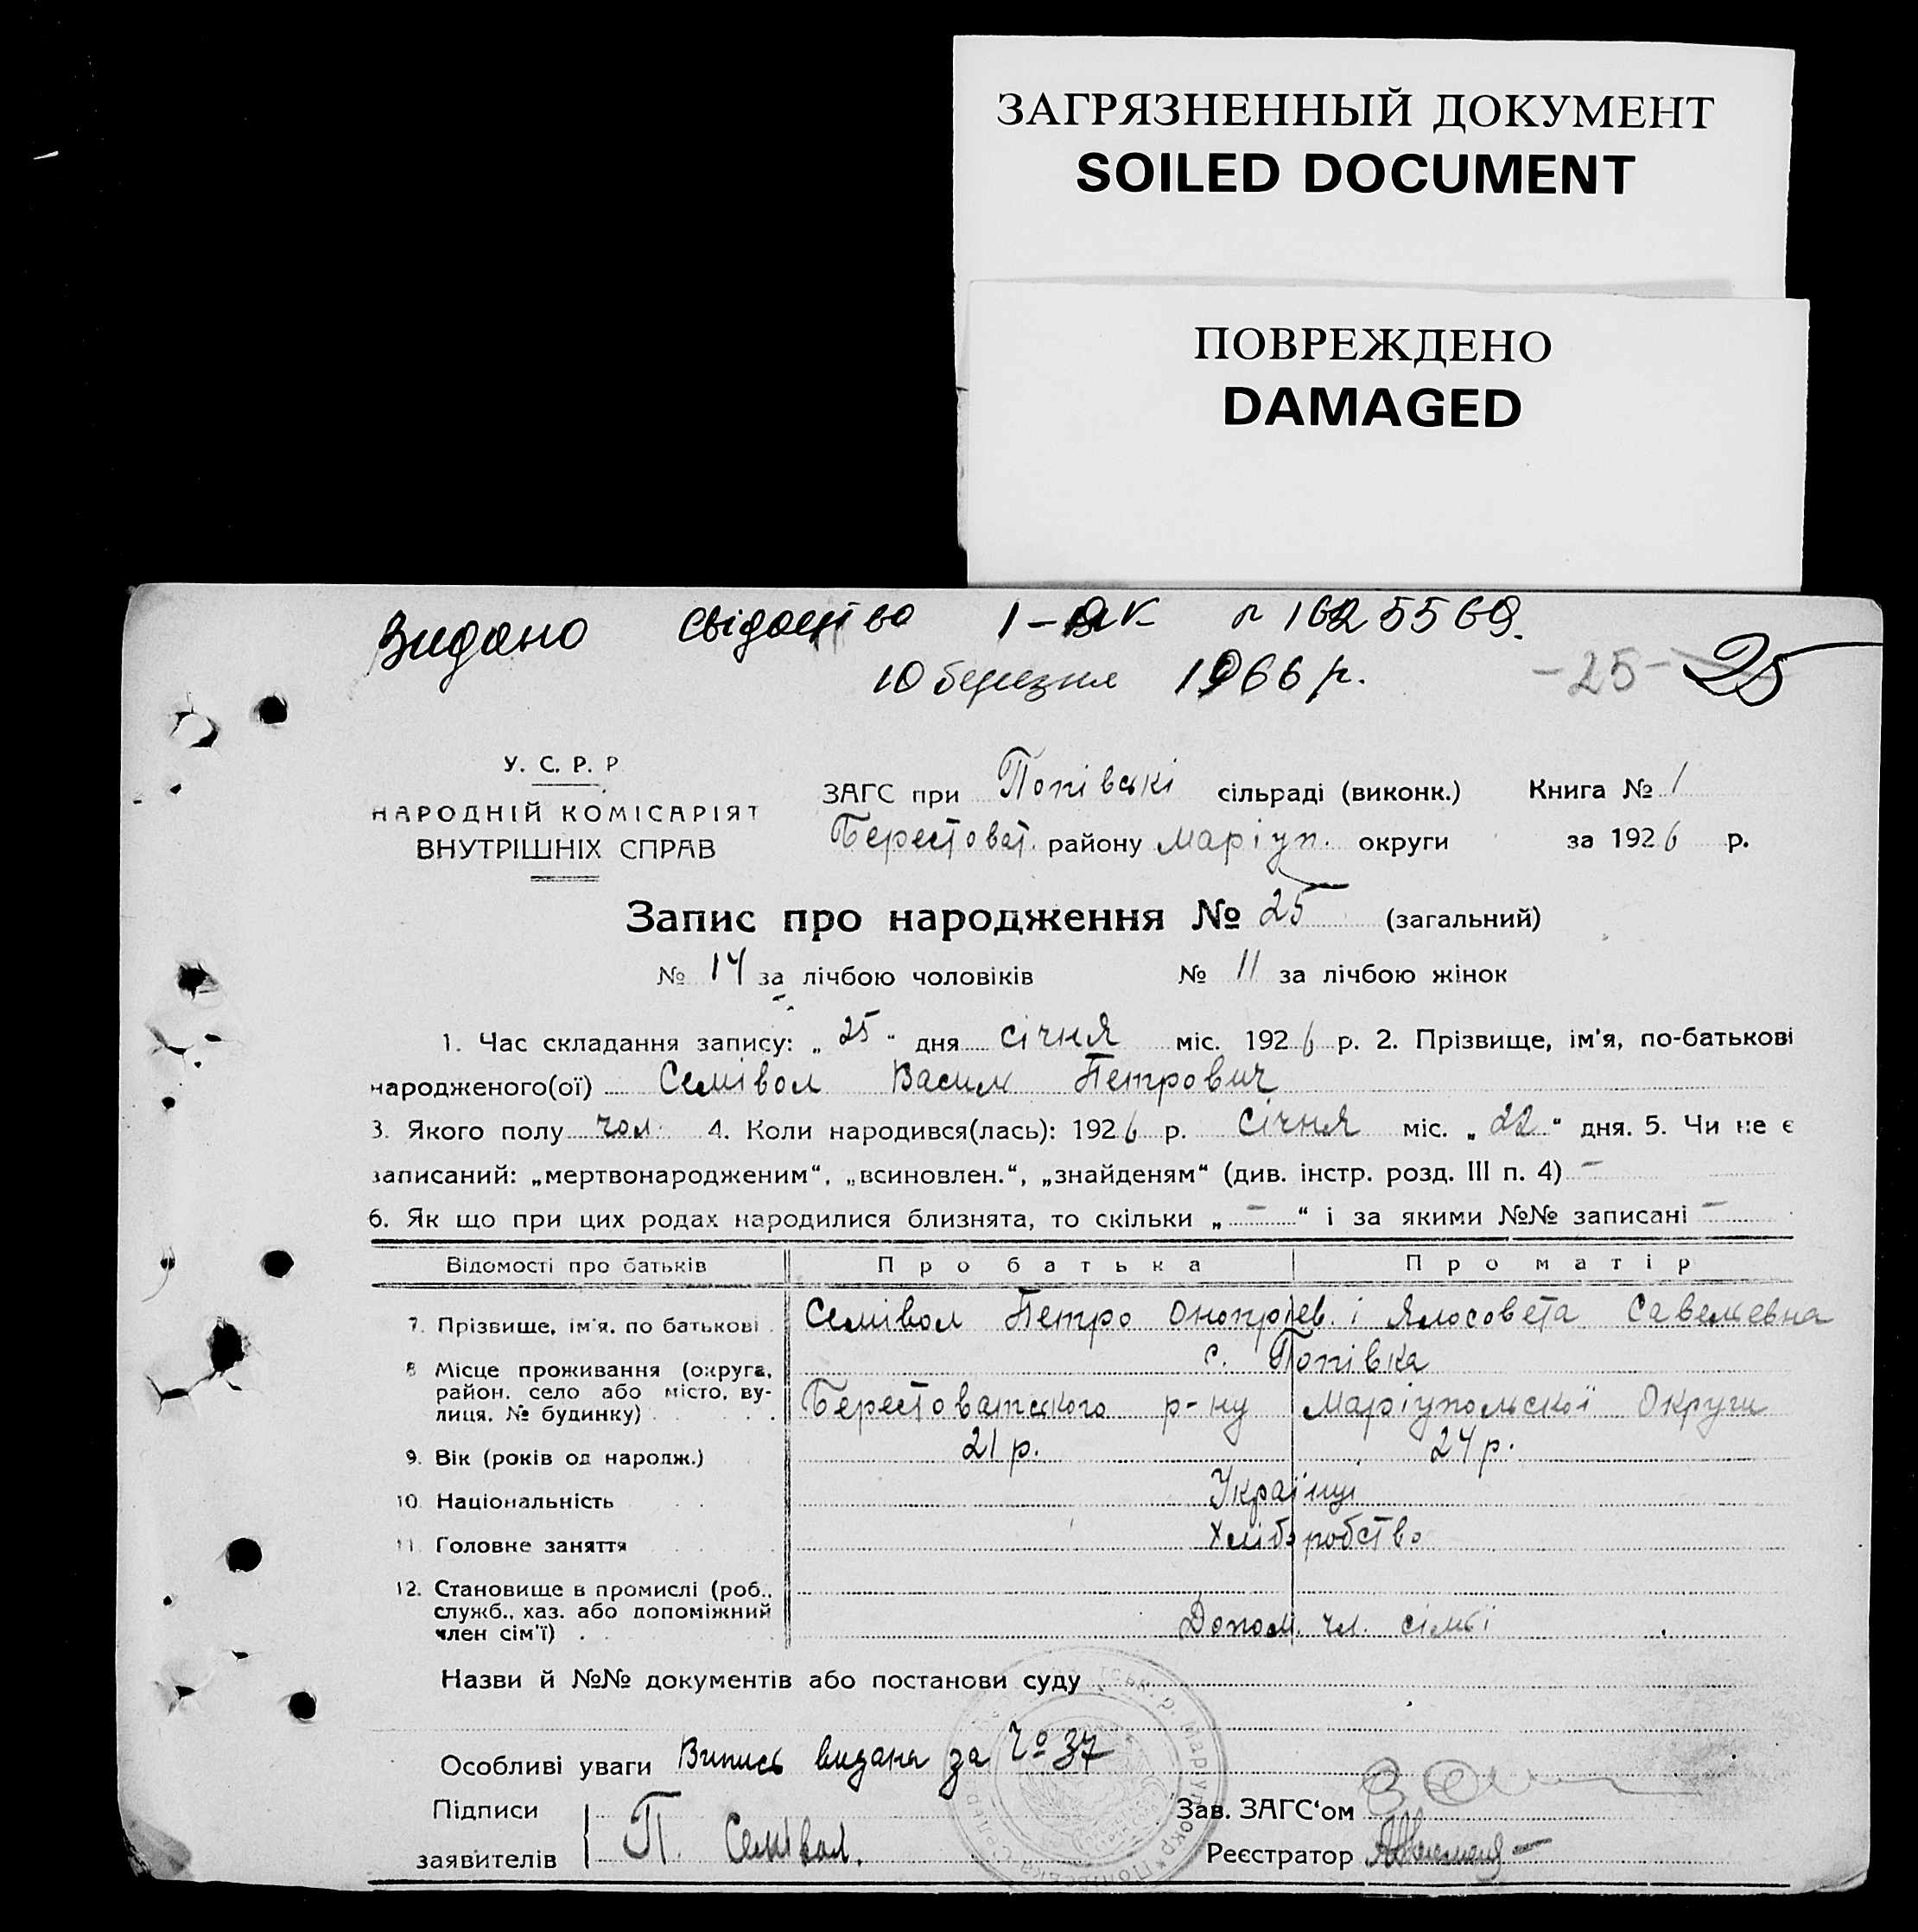 ЗАГРЯЗНЕННЫЙ ДОКУМЕНТ
SOILED DOCUMENT
ПОВРЕЖДЕНО
DAMAGED
Видано свідоцтво І-ЯК № 1625569.
10 березня 1966 р.
-25- 25
У. С. Р. Р
НАРОДНІЙ КОМІСАРІЯТ
ВНУТРІШНІХ СПРАВ
ЗАГС при Попівскі сільраді (виконк.) Книга № 1
Берестоват. району Маріуп. округи за 1926 р.
Запис про народження № 25 (загальний)
№ 14 за лічбою чоловіків № 11 за лічбою жінок
1. Час складання запису: „25“ дня січня міс. 1926 р. 2. Прізвище, ім'я, по-батькові
народженого(ої) Семівол Васил Петрович
3. Якого полу чол. 4. Коли народився(лась): 1926 р. січня міс. „22“ дня. 5. Чи не є
записаний: „мертвонародженим“, „всиновлен.“, „знайденям“ (див. інстр. розд. III п. 4) –
6. Як що при цих родах народилися близнята, то скільки „–“ і за якими №№ записані –
Відомості про батьків Про батька Про матір
7. Прізвище, ім'я, по батькові Семівол Петро Онопріев. і Ялосовета Савелевна
8 Місце проживання (округа, с. Попівка
район, село або місто, ву-
лиця, № будинку) Берестоватського р-ну Маріупольскої Округи
9. Вік (років од народж.) 21 р. 24 р.
10. Національність Українці
11. Головне заняття Хліборобство
12. Становище в промислі (роб.,
служб., хаз. або допоміжний
член сім'ї) Допом. чл. сімьї
Назви й №№ документів або постанови суду
Особливі уваги Випись видана за № 37
Підписи
заявителів П. Семівол.
Зав. ЗАГС'ом
Реєстратор